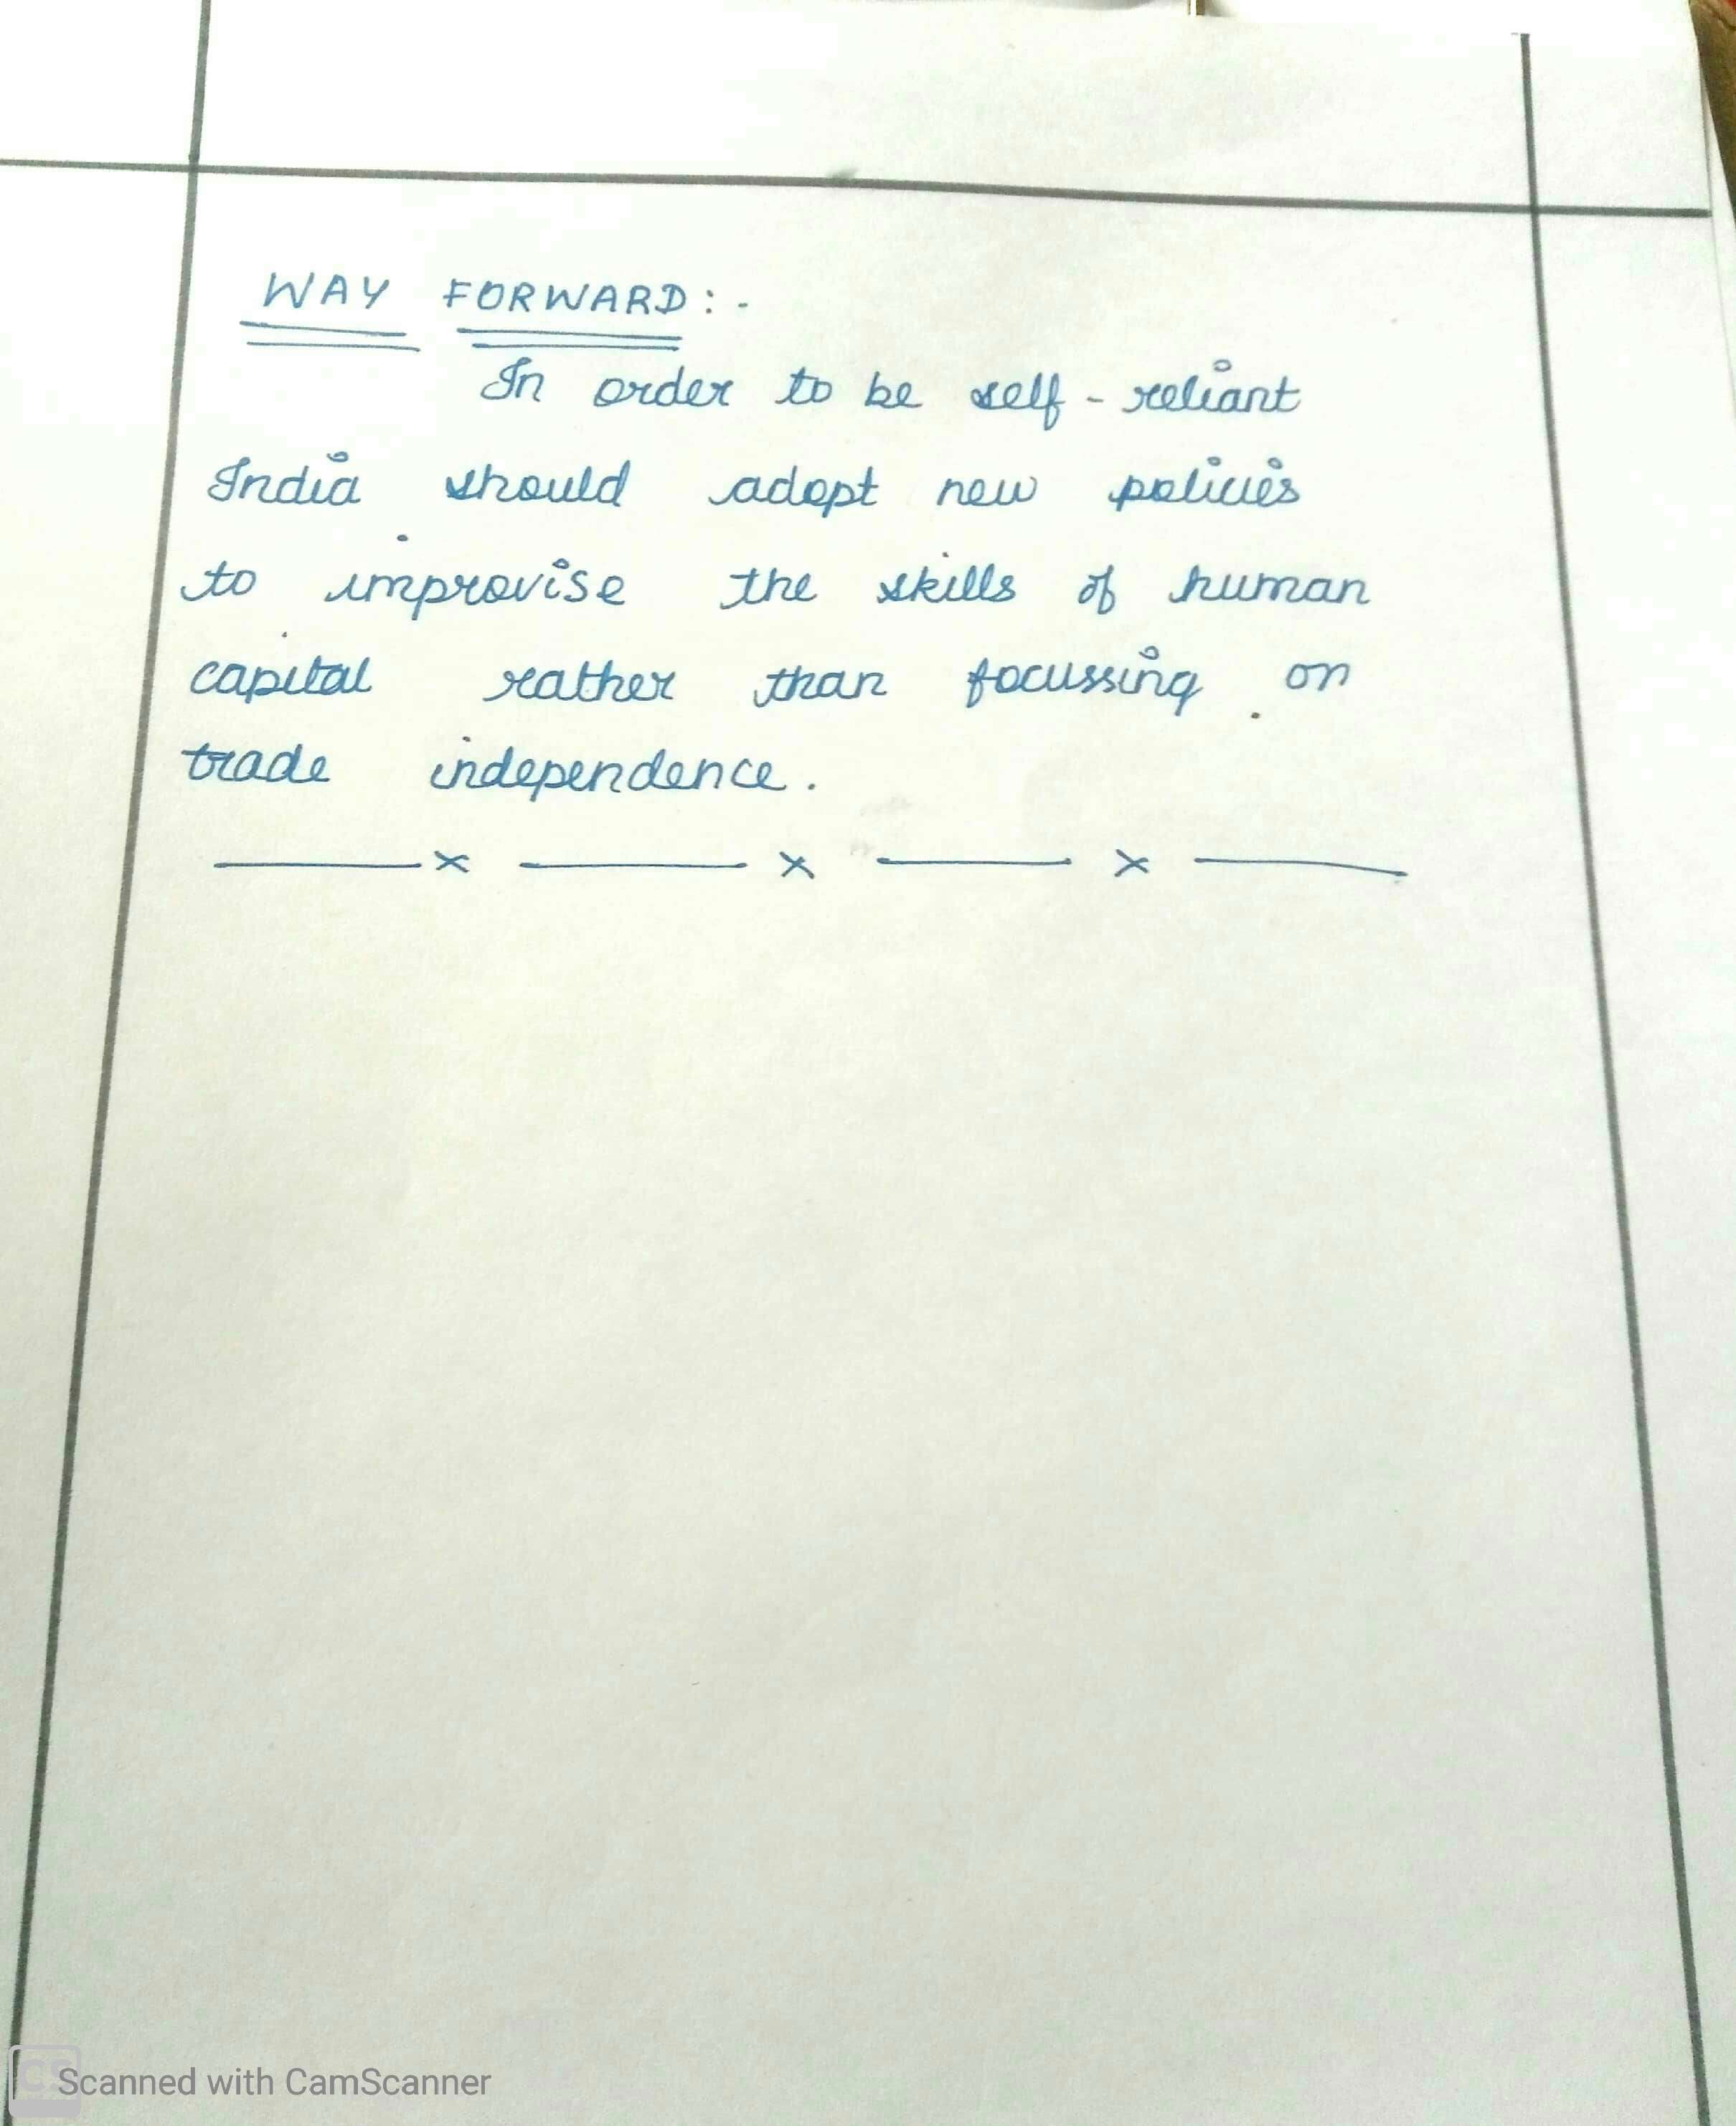 WAY FORWARD:-
In order to be self-reliant
India should adopt new policies
to improvise the skills of human
capital rather than focussing on
trade independence.
——x ——x ——x ——
CS Scanned with CamScanner